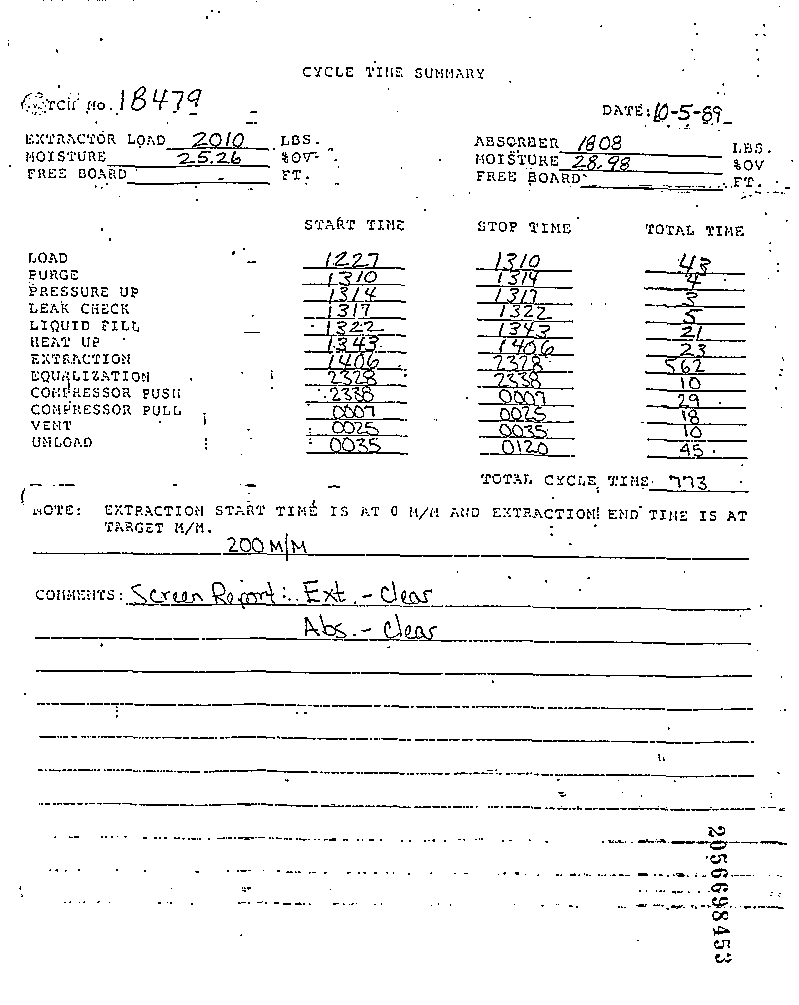 CYCLE TIME SUMMARY
No. 18479
DATE: 10-5-89
EXTRACTOR LOAD 2010 LBS. ABSORBER 1808 LBS.
MOISTURE 25.26 %OV MOISTURE 28.98 %OV
FREE BOARD FT. FREE BOARD FT.
START TIME STOP TIME TOTAL TIME
LOAD 1227 1310 43
PURGE 1310 1314 4
PRESSURE UP 1314 1317 3
LEAK CHECK 1317 1322 5
LIQUID FILL 1322 1343 21
HEAT UP 1343 1406 23
EXTRACTION 1406 2328 562
EQUALIZATION 2328 2338 10
COMPRESSOR PUSH 2338 0007 29
COMPRESSOR PULL 0007 0025 18
VENT 0025 0035 10
UNLOAD 0035 0120 45
TOTAL CYCLE TIME 773
NOTE: EXTRACTION START TIME IS AT 0 M/M AND EXTRACTION END TIME IS AT
TARGET M/M.
200 M/M
COMMENTS: Screen Report: Ext. - Clear
Abs. - Clear
2056698453